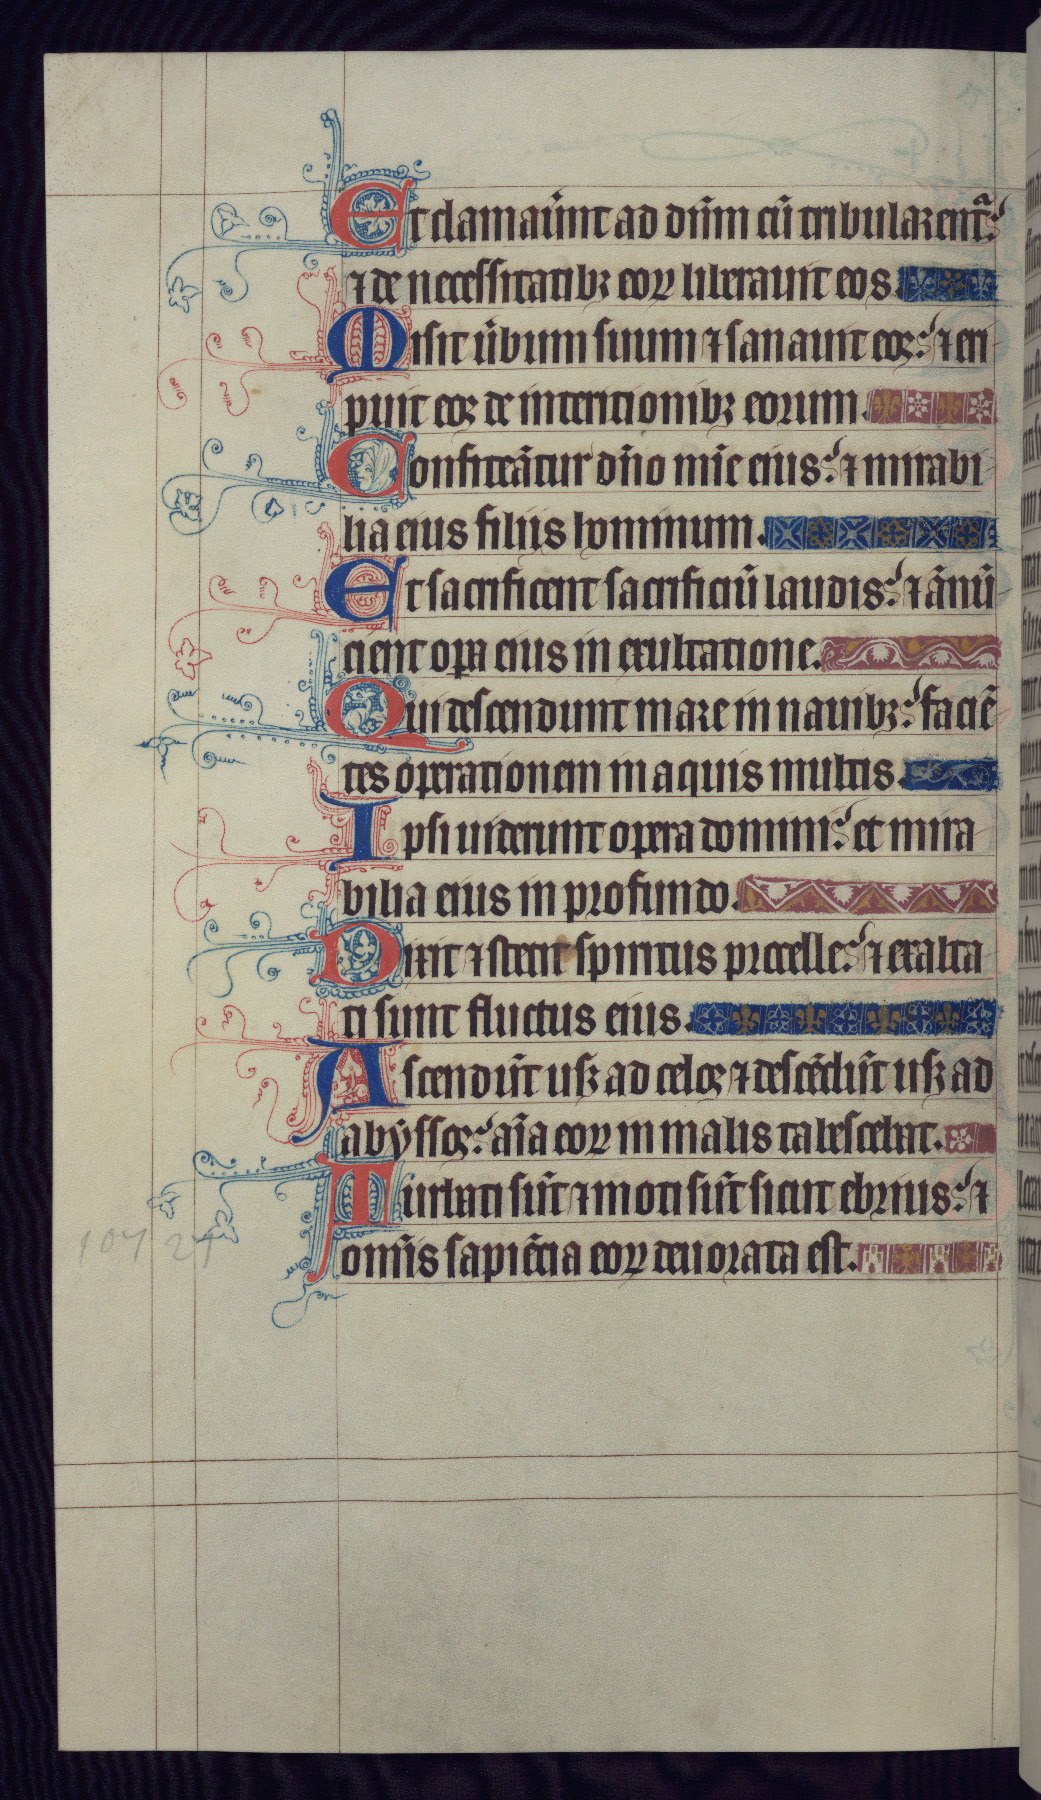 Et clamaũnt ad dñm cũ tribularentᷓ:
⁊ de necessitatibꝫ eoꝝ liberauit eos.
Misit ũbum suum ⁊ sanauit eos: ⁊ eri
puit eos de interitionibꝫ eorum.
Confiteãtur dño mĩe eius: ⁊ mirabi
lia eius filiis hominum.
Et sacrificent sacrificiũ laudis: ⁊ ãnũ
cient oꝑa eius in exultatione.
Qui descendunt mare in nauibꝫ: faciẽ
tes operationem in aquis multis.
Ipsi uiderunt opera domini: et mira
bilia eius in profundo.
Dixit ⁊ stetit spiritus procelle: ⁊ exalta
ti sunt fluctus eius.
Ascendũt usꝫ ad celos ⁊ descẽdũt usꝫ ad
abyssos: aĩa eoꝝ in malis tabescebat.
Turbati sũt ⁊ moti sũt sicut ebrius: ⁊
om̃is sapiẽcia eoꝝ deuorata est.
107 27